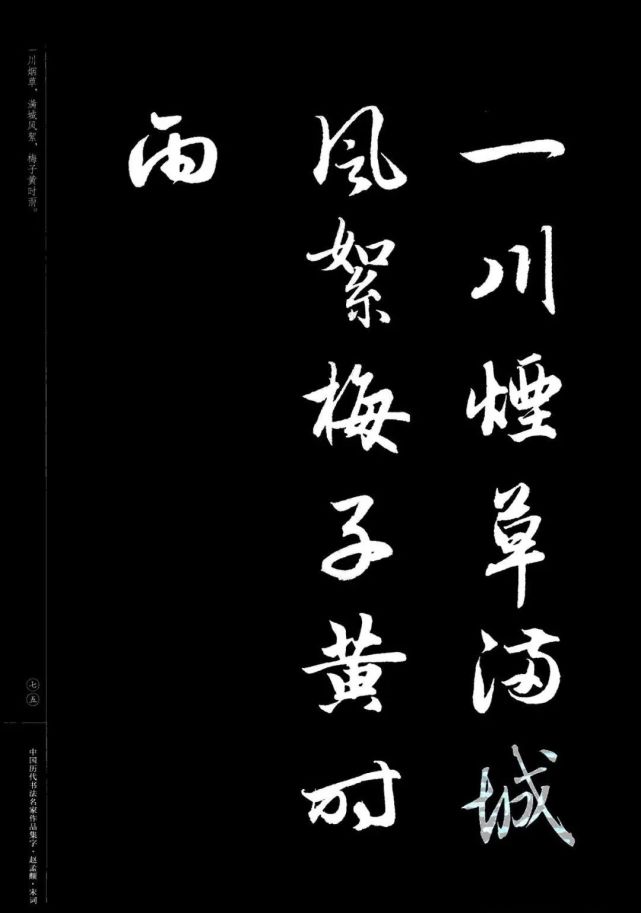 一川煙草满城
风絮梅子黄时
雨
一川烟草，满城风絮，梅子黄时雨。
七五
中国历代书法名家作品集字·赵孟頫·宋词